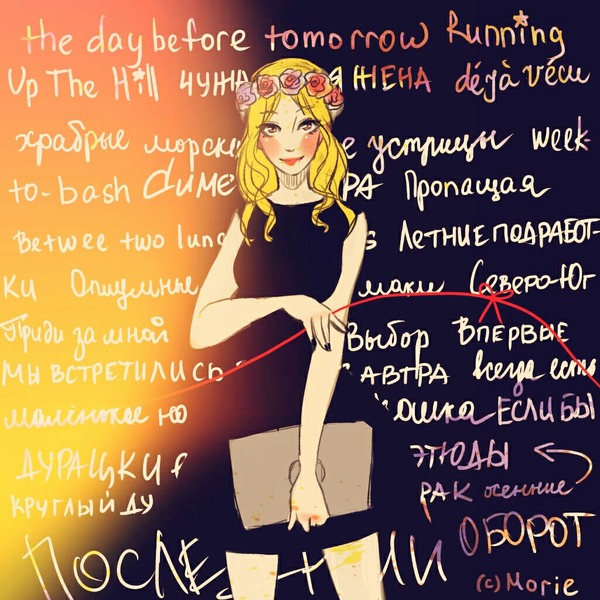 the day before tomorrow Running
Up The Hill ЧУЖА Я ЖЕНА déjà vécu
храбрые морски е устрицы week-
to-bash СИМЕ РА Пропащая
Betwee two lun s ЛЕТНИЕ ПОДРАБОТ-
КИ Опиумные маки Северо-Юг
Приди за мной Выбор ВПЕРВЫЕ
МЫ ВСТРЕТИЛИСЬ ЗАВТРА всегда есть
маленькое но ошка ЕСЛИ БЫ
ДУРАЦКИ ЭТЮДЫ
КРУГЛЫЙ ДУ РАК осенние
ОБОРОТ
ПОСЛЕ
(c) Morie